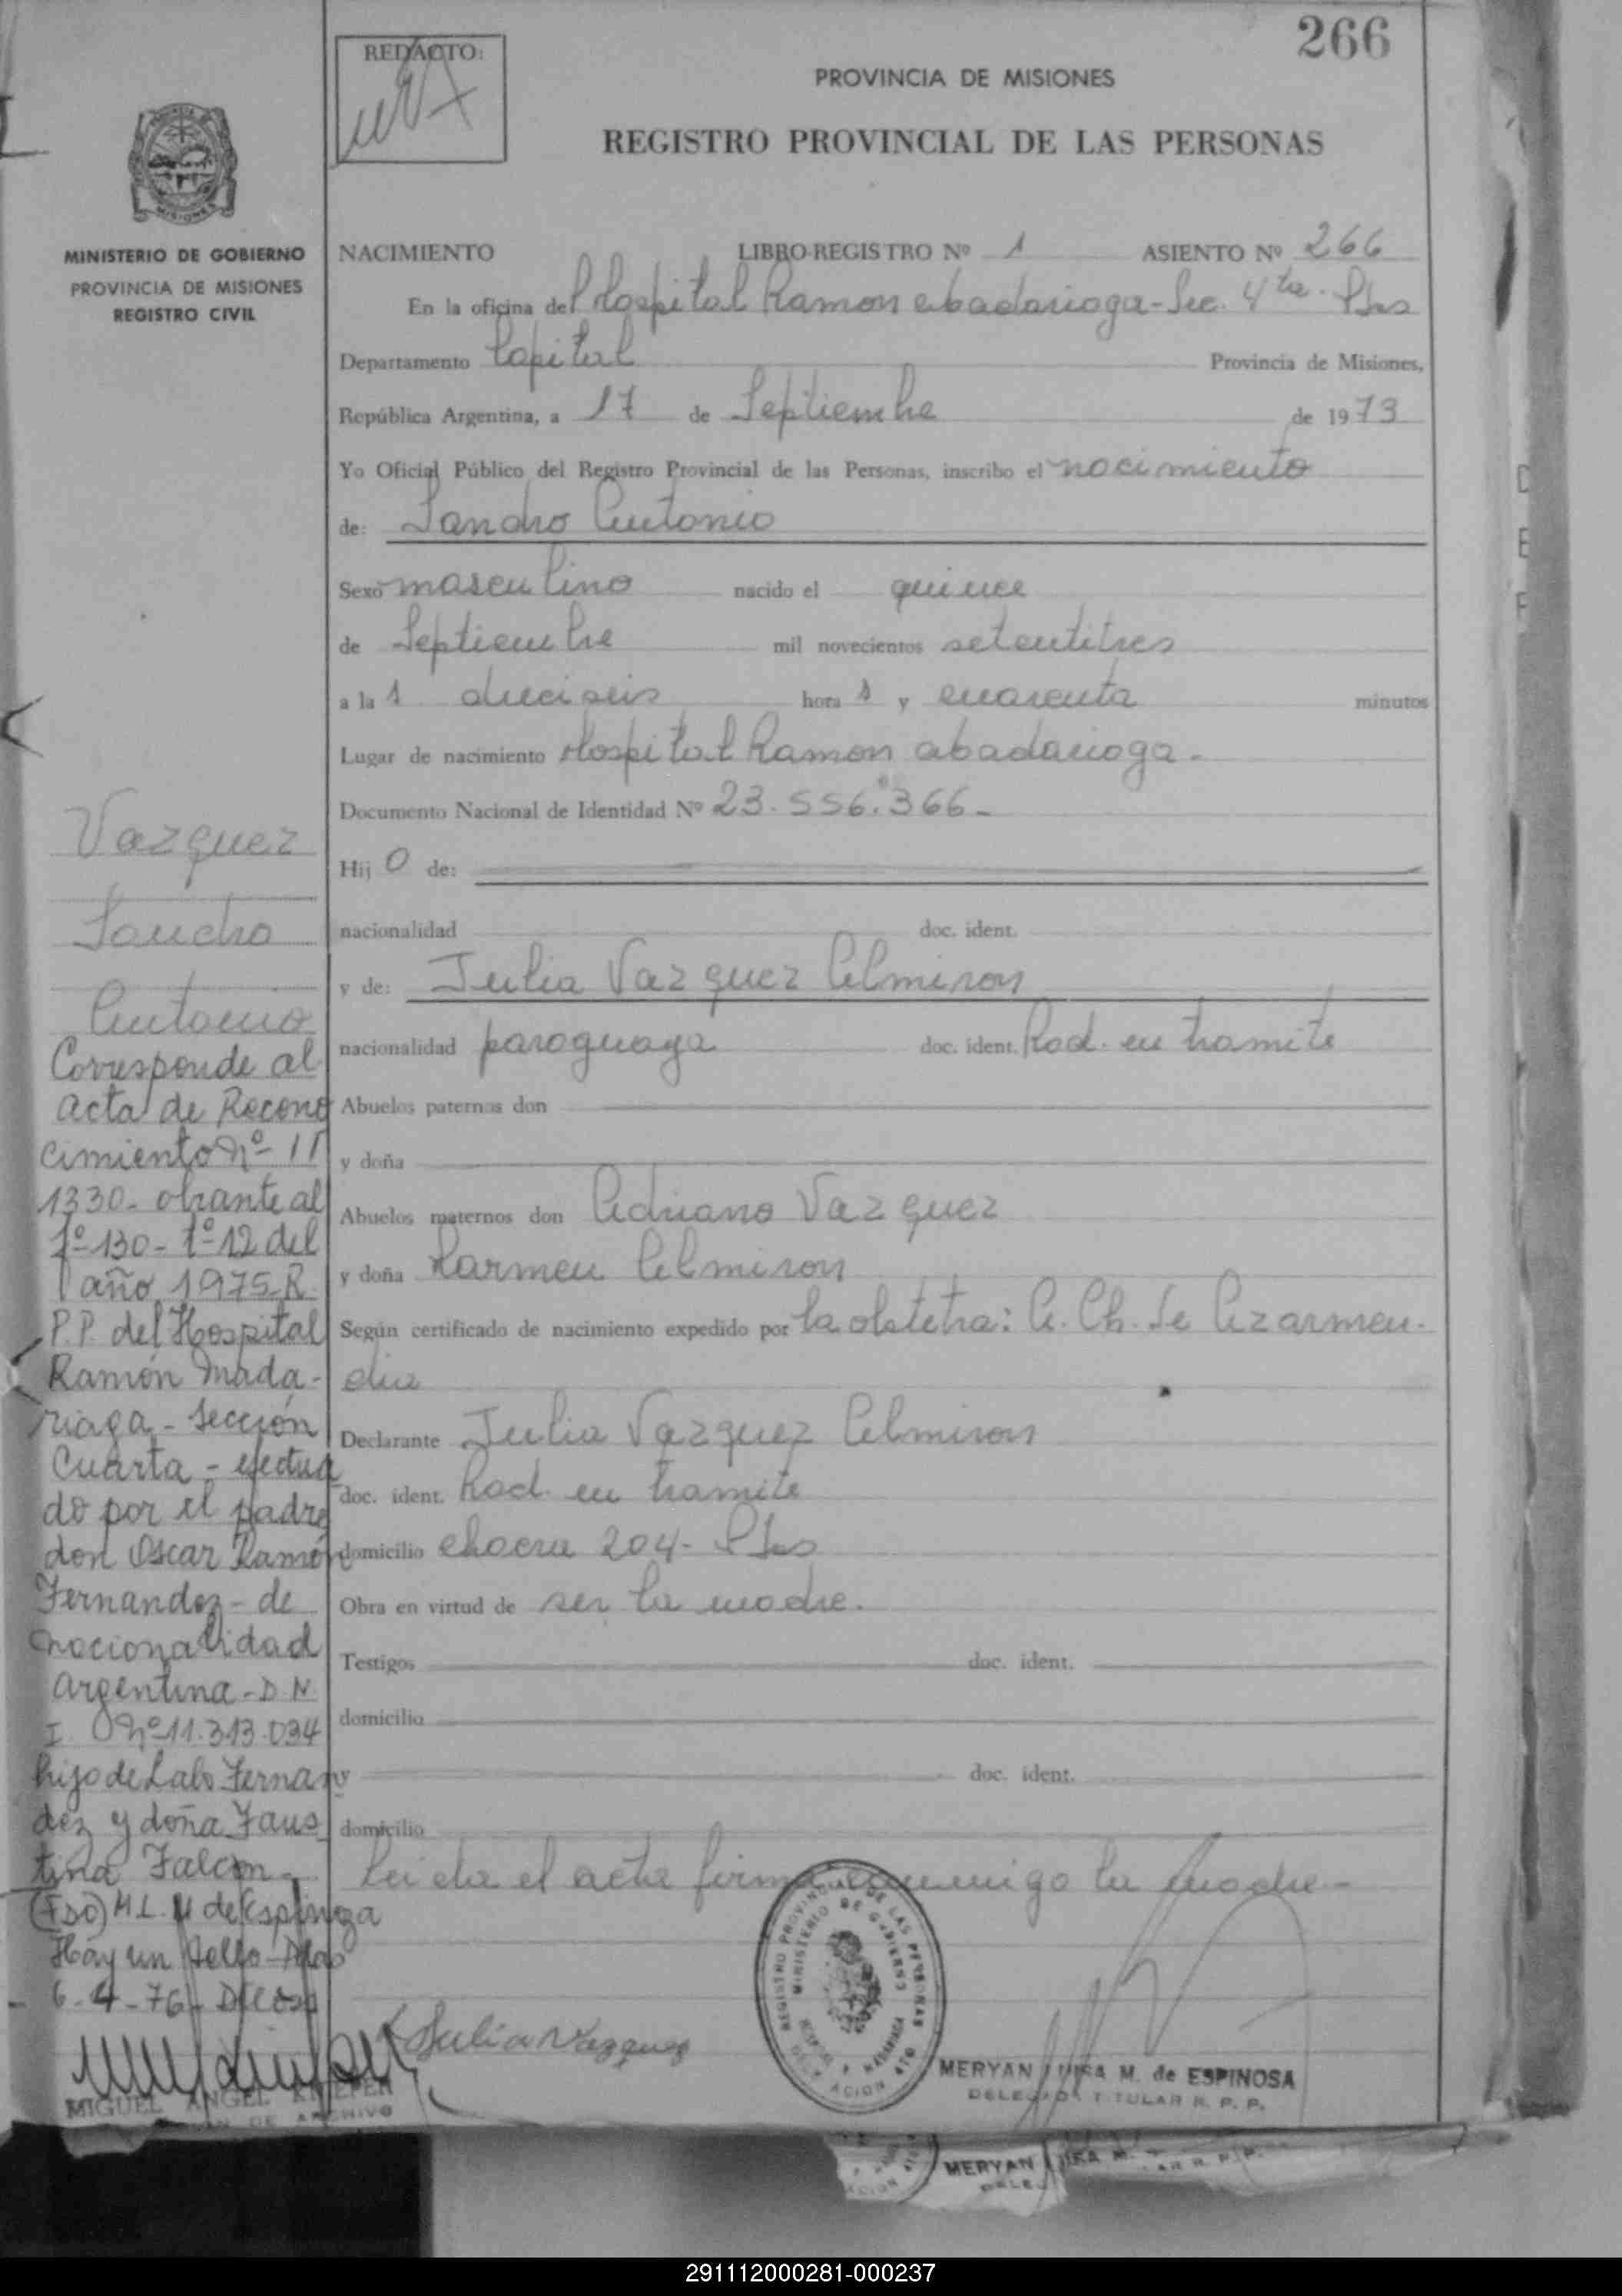 266
REDACTO:
PROVINCIA DE MISIONES
REGISTRO PROVINCIAL DE LAS PERSONAS
MISIONES
MINISTERIO DE GOBIERNO
PROVINCIA DE MISIONES
REGISTRO CIVIL
NACIMIENTO LIBRO-REGISTRO Nº 1 ASIENTO Nº 266
En la oficina del Hospital Ramon abadariaga - Sec. 4ta. Pdas
Departamento Capital Provincia de Misiones,
República Argentina, a 17 de Septiembre de 1973
Yo Oficial Público del Registro Provincial de las Personas, inscribo el nacimiento
de: Sandro Antonio
Sexo masculino nacido el quince
de Septiembre mil novecientos setentitres
a las dieciseis horas y cuarenta minutos
Lugar de nacimiento Hospital Ramon abadariaga.
Documento Nacional de Identidad Nº 23.556.366-
Hijo de:
nacionalidad doc. ident.
y de: Julia Vazquez Almiron
nacionalidad paraguaya doc. ident. Rad. en tramite
Abuelos paternos don
y doña
Abuelos maternos don Adriano Vazquez
y doña Karmen Almiron
Según certificado de nacimiento expedido por la obstetra: A. Ch. de Azarmen-
dia
Declarante Julia Vazquez Almiron
doc. ident. Rad. en tramite
domicilio chacra 204 - Pdas
Obra en virtud de ser la madre.
Testigos doc. ident.
domicilio
y doc. ident.
domicilio
Leida el acta firma conmigo la madre-
Vazquez
Sandro
Antonio
Corresponde al
acta de Recono
cimiento nº 11
1330- obrante al
fº 130- tº 12 del
año 1975-R.
P.P. del Hospital
Ramón Mada-
riaga - Sección
Cuarta - efectua
do por el padre
don Oscar Ramón
Fernandez - de
nacionalidad
argentina - D.N.
I. nº 11.313.034
hijo de Lalo Fernan
dez y doña Faus
tina Falcon-
(FDO) M.L.M de Espinoza
Hay un sello - Pdas
6-4-76-
Julia Vazquez
REGISTRO PROVINCIAL DE LAS PERSONAS
MINISTERIO DE GOBIERNO
MERYAN LUISA M. de ESPINOSA
DELEGADA TITULAR R. P. P.
MIGUEL ANGEL
DE ARCHIVO
MERYAN
291112000281-000237